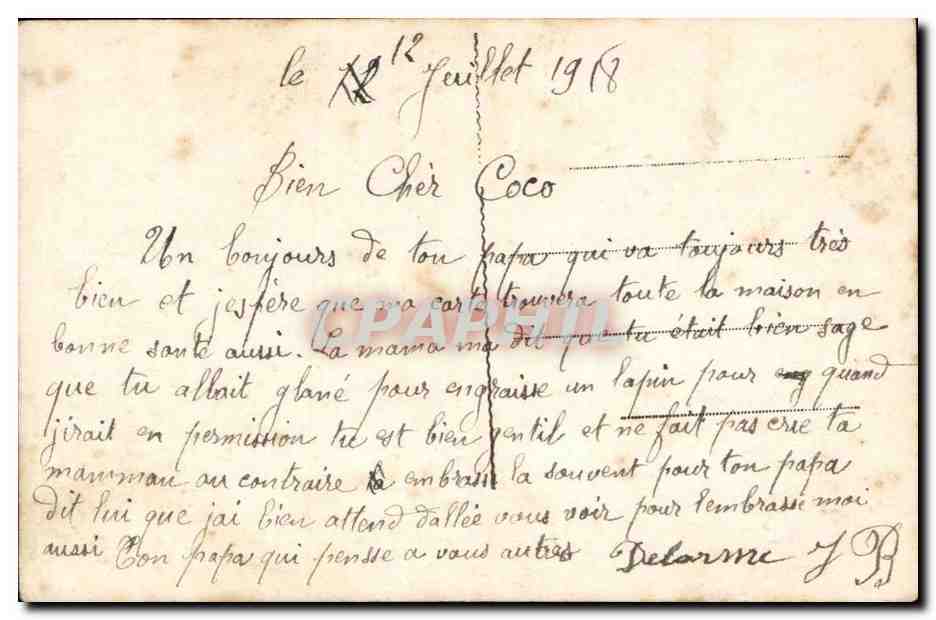 le 12 Juillet 1918
Bien Chèr Coco
Un bonjours de ton papa qui va toujours très
bien et jespère que ma carte trouvera toute la maison en
bonne santé aussi. La mama ma dit que tu était bien sage
que tu allait glané pour engraisse un lapin pour quand
jirait en permission tu est bien gentil et ne fait pas crie ta
mamman au contraire embrasse la souvent pour ton papa
dit lui que jai bien attend dallée vous voir pour lembrassé moi
aussi Ton papa qui pensse a vous autres Delorme J B
CPAPHIL